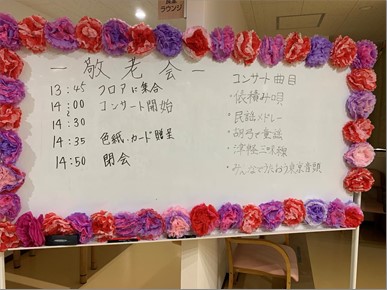 食堂
ラウンジ
－敬老会－
13：45 フロアに集合
14：00 コンサート開始
～
14：30
14：35 色紙・カード贈呈
14：50 閉会
コンサート曲目
・俵積み唄
・民謡メドレー
・胡弓で童謡
・津軽三味線
・みんなでうたおう東京音頭